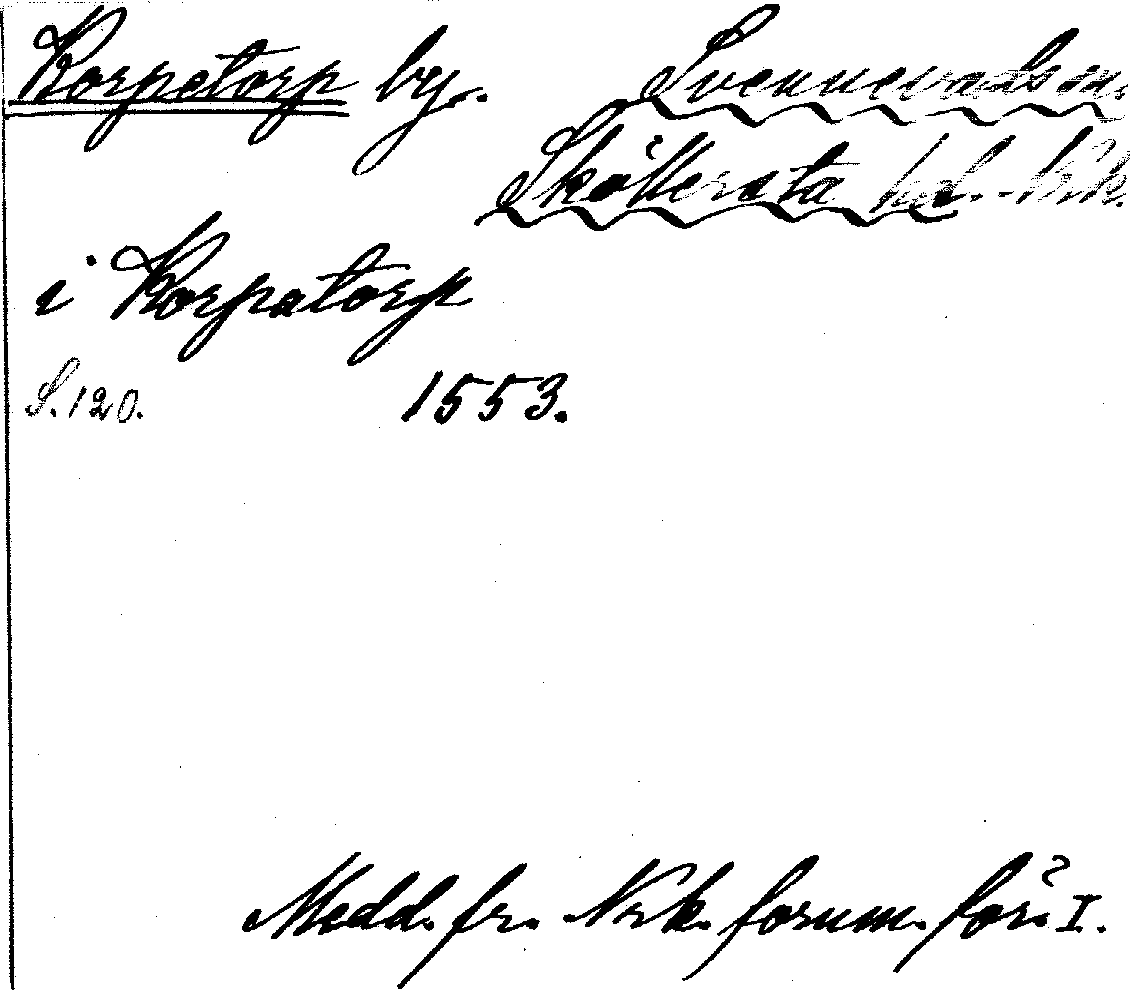 Korpetorp by. Svennevads sn.
Sköllersta hd. Nrk.
i Korpatorp
S. 120. 1553.
Medd. fr. Nrk. fornm.för. I.